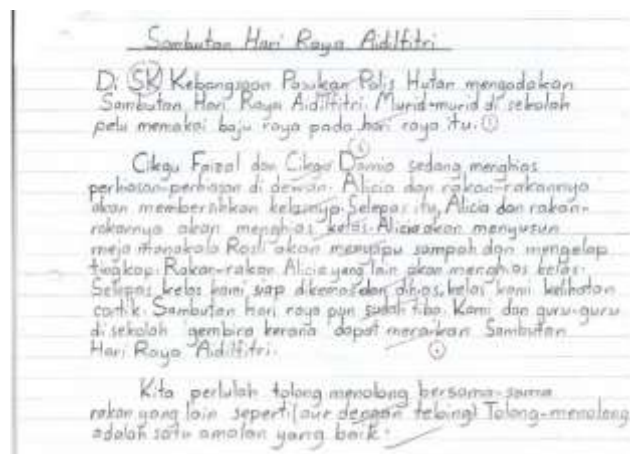 Sambutan Hari Raya Aidilfitri
Di SK Kebangsaan Pasukan Polis Hutan mengadakan
Sambutan Hari Raya Aidilfitri. Murid-murid di sekolah
pelu memakai baju raya pada hari raya itu.
Cikgu Faizal dan Cikgu sedang menghias
perhiasan-perhiasan di dewan. Alicia dan rakan-rakannya
akan membersihkan kelasnya. Selepas itu, Alicia dan rakan-
rakannya akan menghias kelas. Alicia akan menyusun
meja manakala Rosli akan menyapu sampah dan mengelap
tingkap. Rakan-rakan Alicia yang lain akan menghias kelas.
Selepas kelas kami siap dikemas dan dihias, kelas kami kelihatan
cantik. Sambutan hari raya pun sudah tiba. Kami dan guru-guru
di sekolah gembira kerana dapat meraikan Sambutan
Hari Raya Aidilfitri.
Kita perlulah tolong menolong bersama-sama
rakan yang lain seperti (aur dengan tebing) Tolong-menolong
adalah satu amalan yang baik.